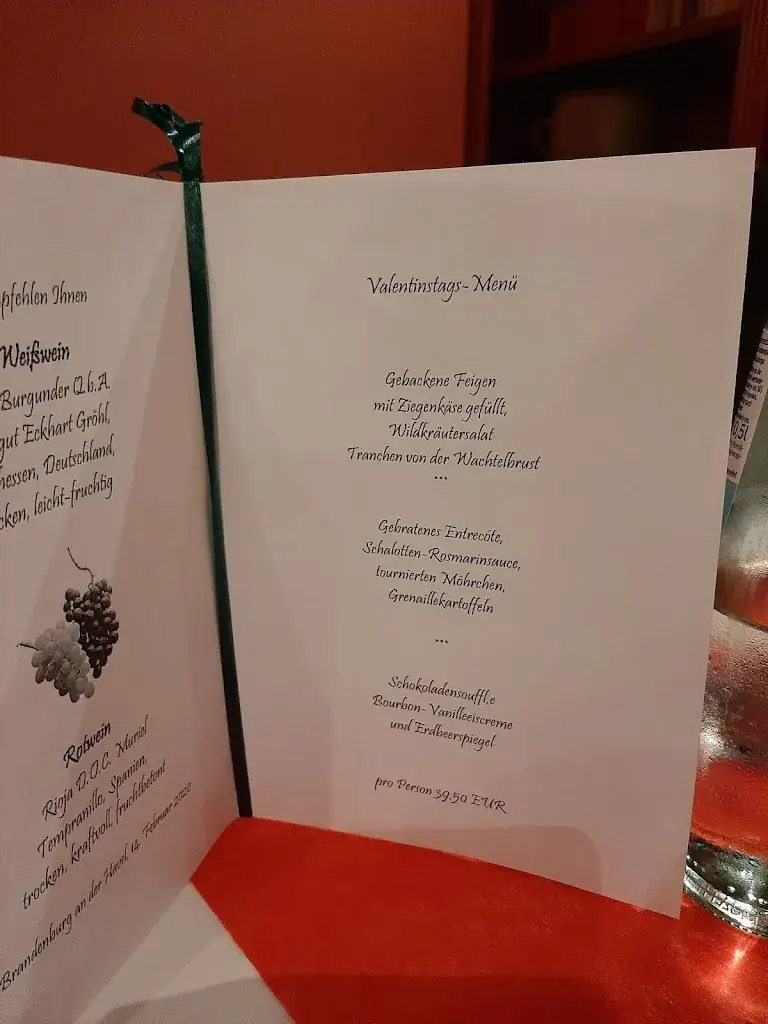 pfehlen Ihnen
Weißwein
Burgunder Q.b.A.
gut Eckhart Gröhl,
hessen, Deutschland,
cken, leicht-fruchtig
Rotwein
Rioja D.O.C. Muriel
Tempranillo, Spanien,
trocken, kraftvoll, fruchtbetont
Brandenburg an der Havel, 14. Februar 2020
Valentinstags-Menü
Gebackene Feigen
mit Ziegenkäse gefüllt,
Wildkräutersalat
Tranchen von der Wachtelbrust
***
Gebratenes Entrecóte,
Schalotten-Rosmarinsauce,
tournierten Möhrchen,
Grenaillekartoffeln
***
Schokoladensouffl,e
Bourbon-Vanilleeiscreme
und Erdbeerspiegel
pro Person 39,50 EUR
0,5l